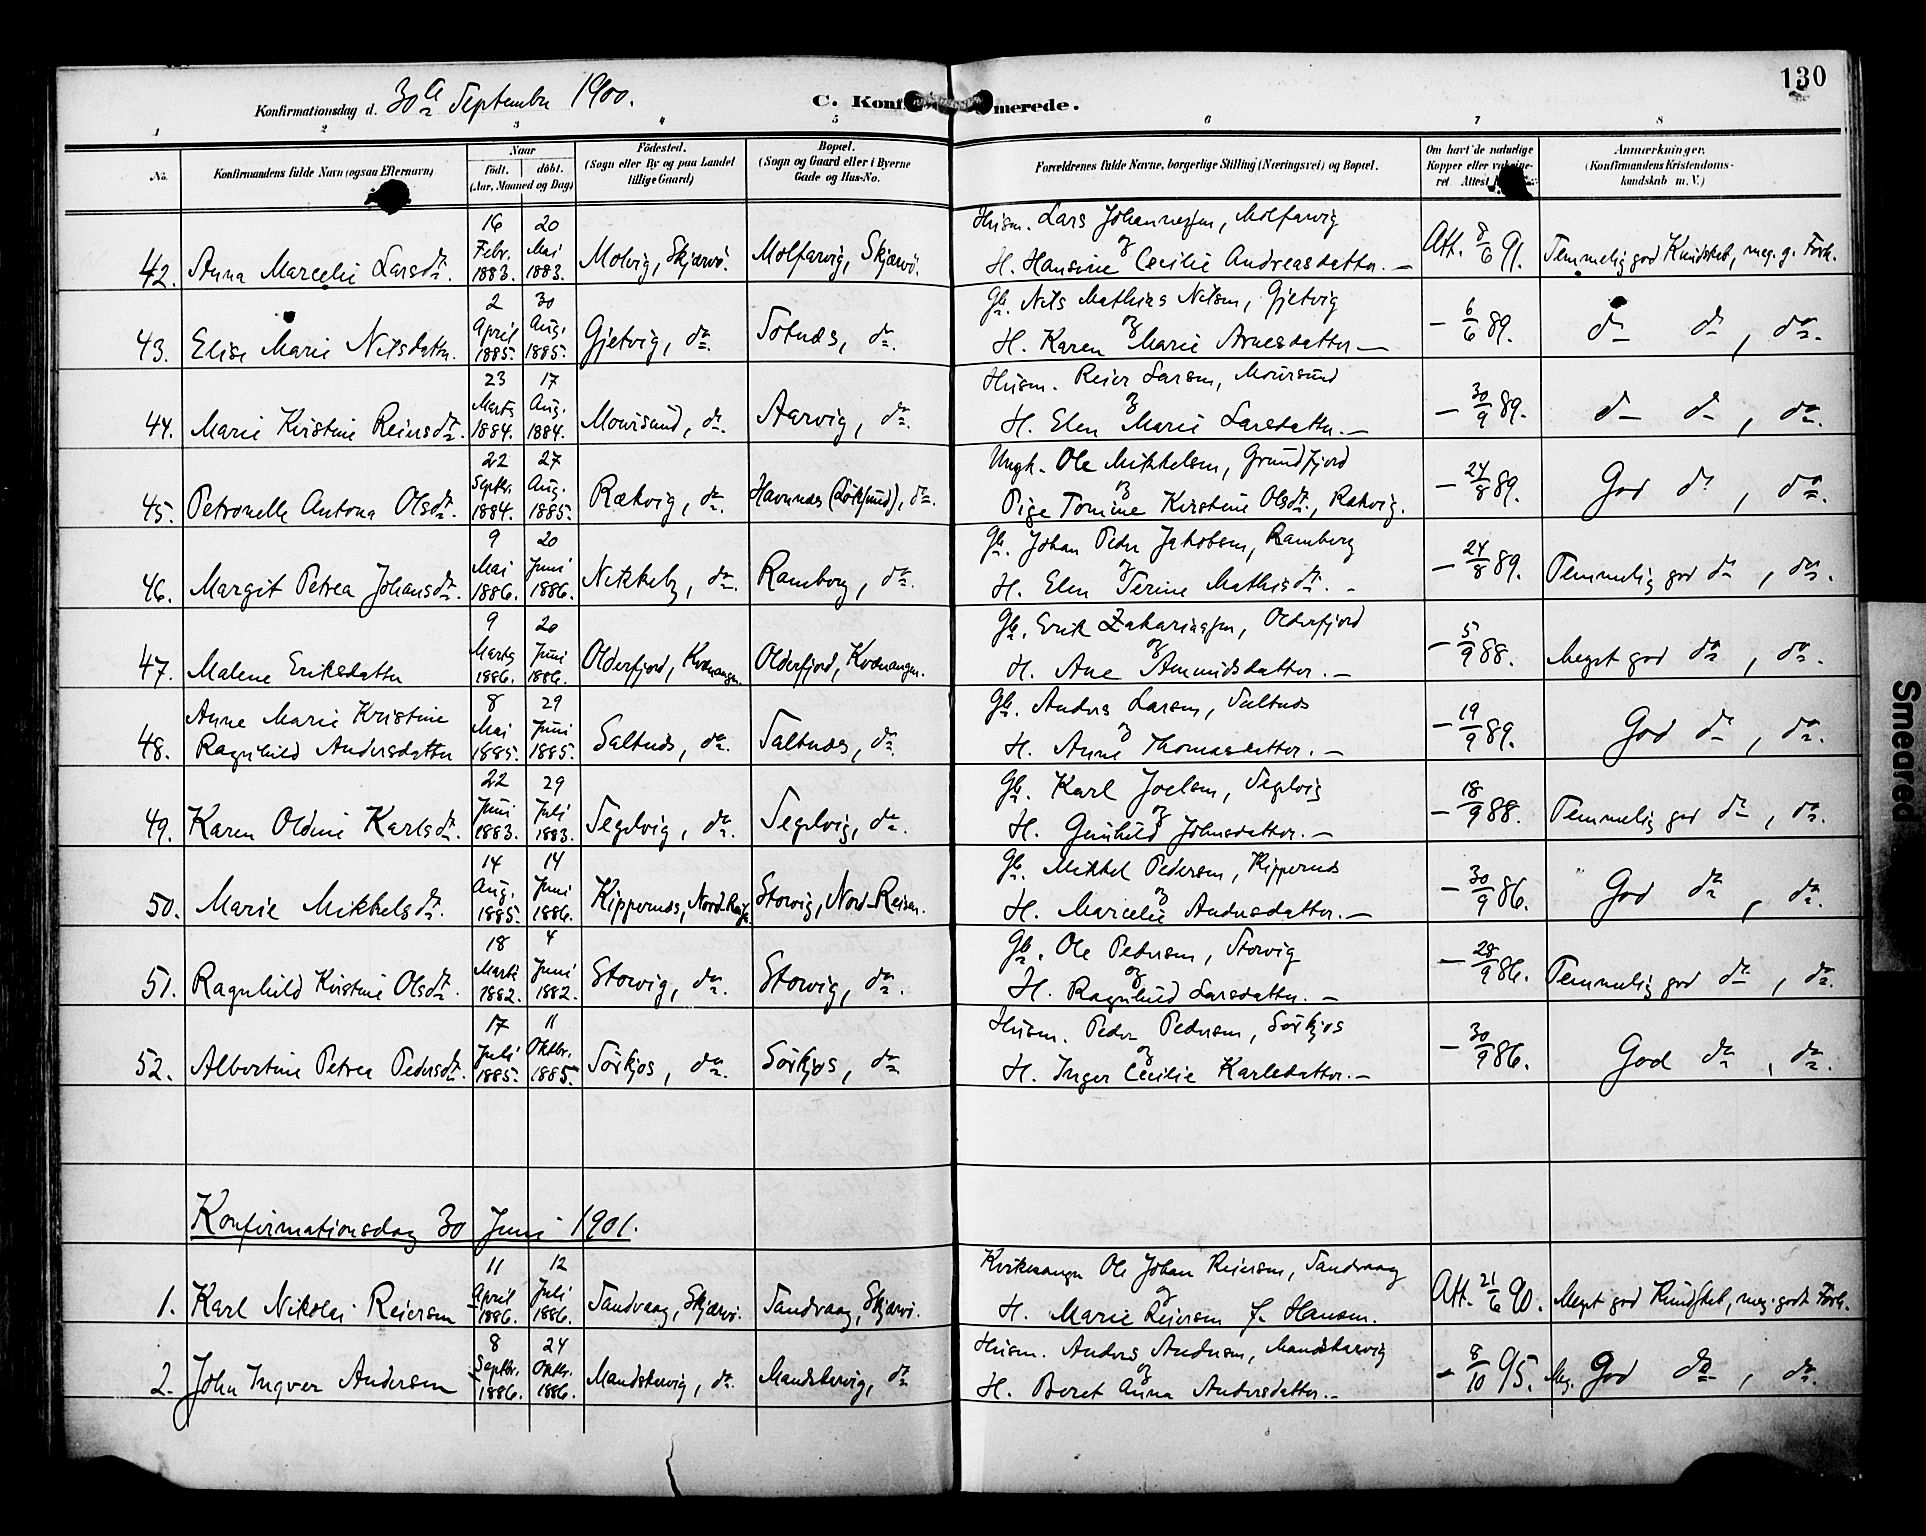 130
Konfirmationsdag d. 30te September 1900. C. Konf merede.
1 2 3 4 5 6 7 8
No. Konfirmandens fulde Navn (ogsaa Efternavn) Naar født. døbt. (Aar, Maaned og Dag) Fødested. (Sogn eller By og paa Landet tillige Gaard) Bopæl. (Sogn og Gaard eller i Byerne Gade og Hus-No. Forældrenes fulde Navne, borgerlige Stilling (Næringsvei) og Bopæl. Om havt de naturlige Kopper eller vaccineret Attest Anmærkninger. (Konfirmandens Kristendomskundskab m. V.)
42. Anna Marcelie Larsdt. 16 Febr. 1883. 20 Mai 1883. Molvig, Skjærvø. Molfarvig, Skjærvø. Husm. Lars Johannessen, Molfarvig og H. Hansine Cecilie Andreasdatter. — Att. 8/6 91. Temmelig god Kundskab, meg. g. Forh.
43. Elise Marie Nilsdatter. 2 April 1885. 30 Aug. 1885. Gjetvig, do. Totnæs, do. Gb. Nils Mathias Nilsen, Gjetvig og H. Karen Marie Arnesdatter — – 6/6 89. do do, do.
44. Marie Kristine Reiersdt. 23 Marts 1884. 17 Aug. 1884. Moursund, do. Aarvig, do. Husm. Reier Larsen, Moursund og H. Elen Marie Larsdatter. — – 30/9 89. do do, do.
45. Petronelle Antona Olsdt. 22 Septbr. 1884. 27 Aug. 1885. Rækvig, do. Havnnæs (Løksund), do. Ungk. Ole Mikkelsen, Grundfjord og Pige Tomine Kirstine Olsdt., Rækvig. – 24/8 89. God do, do.
46. Margit Petrea Johansdt. 9 Mai 1886. 20 Juni 1886. Nikkeby, do. Ramberg, do. Gb. Johan Peder Jakobsen, Ramberg og H. Elen Serine Mathisdt. – – 24/8 89. Temmelig god do, do.
47. Malene Eriksdatter 9 Marts 1886. 20 Juni 1886. Olderfjord, Kvænangen. Olderfjord, Kvænangen. Gb. Erik Zakariassen, Olderfjord og H. Ane Amundsdatter. — – 5/9 88. Meget god do, do.
48. Anne Marie Kristine Ragnhild Andersdatter 8 Mai 1885. 29 Juni 1885. Saltnæs, do. Saltnæs, do. Gb. Anders Larsen, Saltnæs og H. Anne Thomasdatter. — – 19/9 89. God do, do.
49. Karen Oldine Karlsdt. 22 Juni 1883. 29 Juli 1883. Segelvig, do. Segelvig, do. Gb. Karl Joelsen, Segelvig og H. Gunhild Johnsdatter. — – 18/9 88. Temmelig god do, do.
50. Marie Mikkelsdt. 14 Aug. 1885. 14 Juni 1886. Kippernæs, Nord-Reisen. Storvig, Nord-Reisen. Gb. Mikkel Pedersen, Kippernæs og H. Marcelie Andersdatter. — – 30/9 86. God do, do.
51. Ragnhild Kristine Olsdt. 18 Marts 1882. 4 Juni 1882. Storvig, do. Storvig, do. Gb. Ole Pedersen, Storvig og H. Ragnhild Larsdatter. — – 28/9 86. Temmelig god do, do.
52. Albertine Petrea Pedersdt. 17 Juli 1885. 11 Oktbr. 1885. Sørkjos, do. Sørkjos, do Husm. Peder Pedersen, Sørkjos og H. Inger Cecilie Karlsdatter. — – 30/9 86. God do, do.
Konfirmationsdag 30 Juni 1901.
1. Karl Nikolai Reiersen 11 April 1886. 12 Juli 1886. Sandvaag, Skjærvø. Sandvaag, Skjærvø. Ole Johan Reiersen, Sandvaag og H. Marie Reiersen f. Hansen. Att. 21/6 90. Meget god Kundskab, meg. godt Forh.
2. John Ingver Andersen 8 Septbr. 1886. 24 Oktbr. 1886. Mandskarvig, do. Mandskarvig, do Husm. Anders Andersen, Mandskarvig og H. Beret Anna Andersdatter. – – 8/10 95. Meg. God do, do.
Smeared